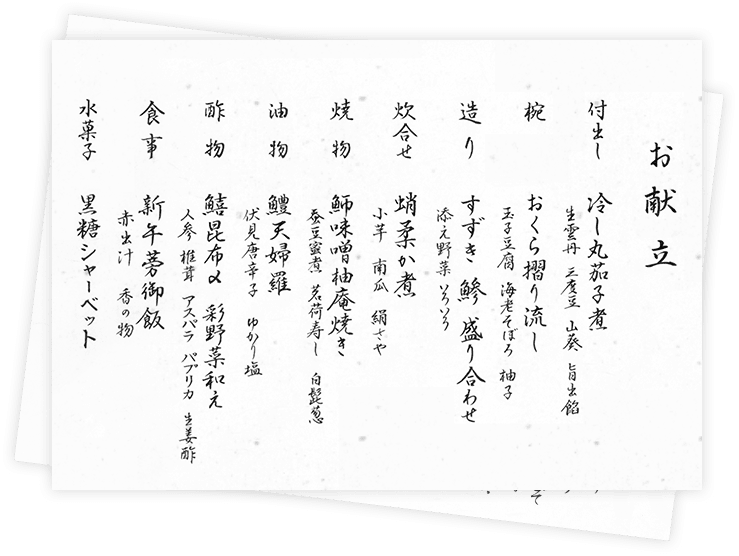 お献立
付出し 冷し丸茄子煮
生雲丹 三度豆 山葵 旨出餡
椀 おくら摺り流し
玉子豆腐 海老そぼろ 柚子
造り すずき 鯵 盛り合わせ
添え野菜いろいろ
炊合せ 蛸柔か煮
小芋 南瓜 絹さや
焼物 鰤味噌柚庵焼き
蚕豆蜜煮 茗荷寿し 白髭葱
油物 鱧天婦羅
伏見唐辛子 ゆかり塩
酢物 鱚昆布〆 彩野菜和え
人参 椎茸 アスパラ パプリカ 生姜酢
食事 新午蒡御飯
赤出汁 香の物
水菓子 黒糖シャーベット